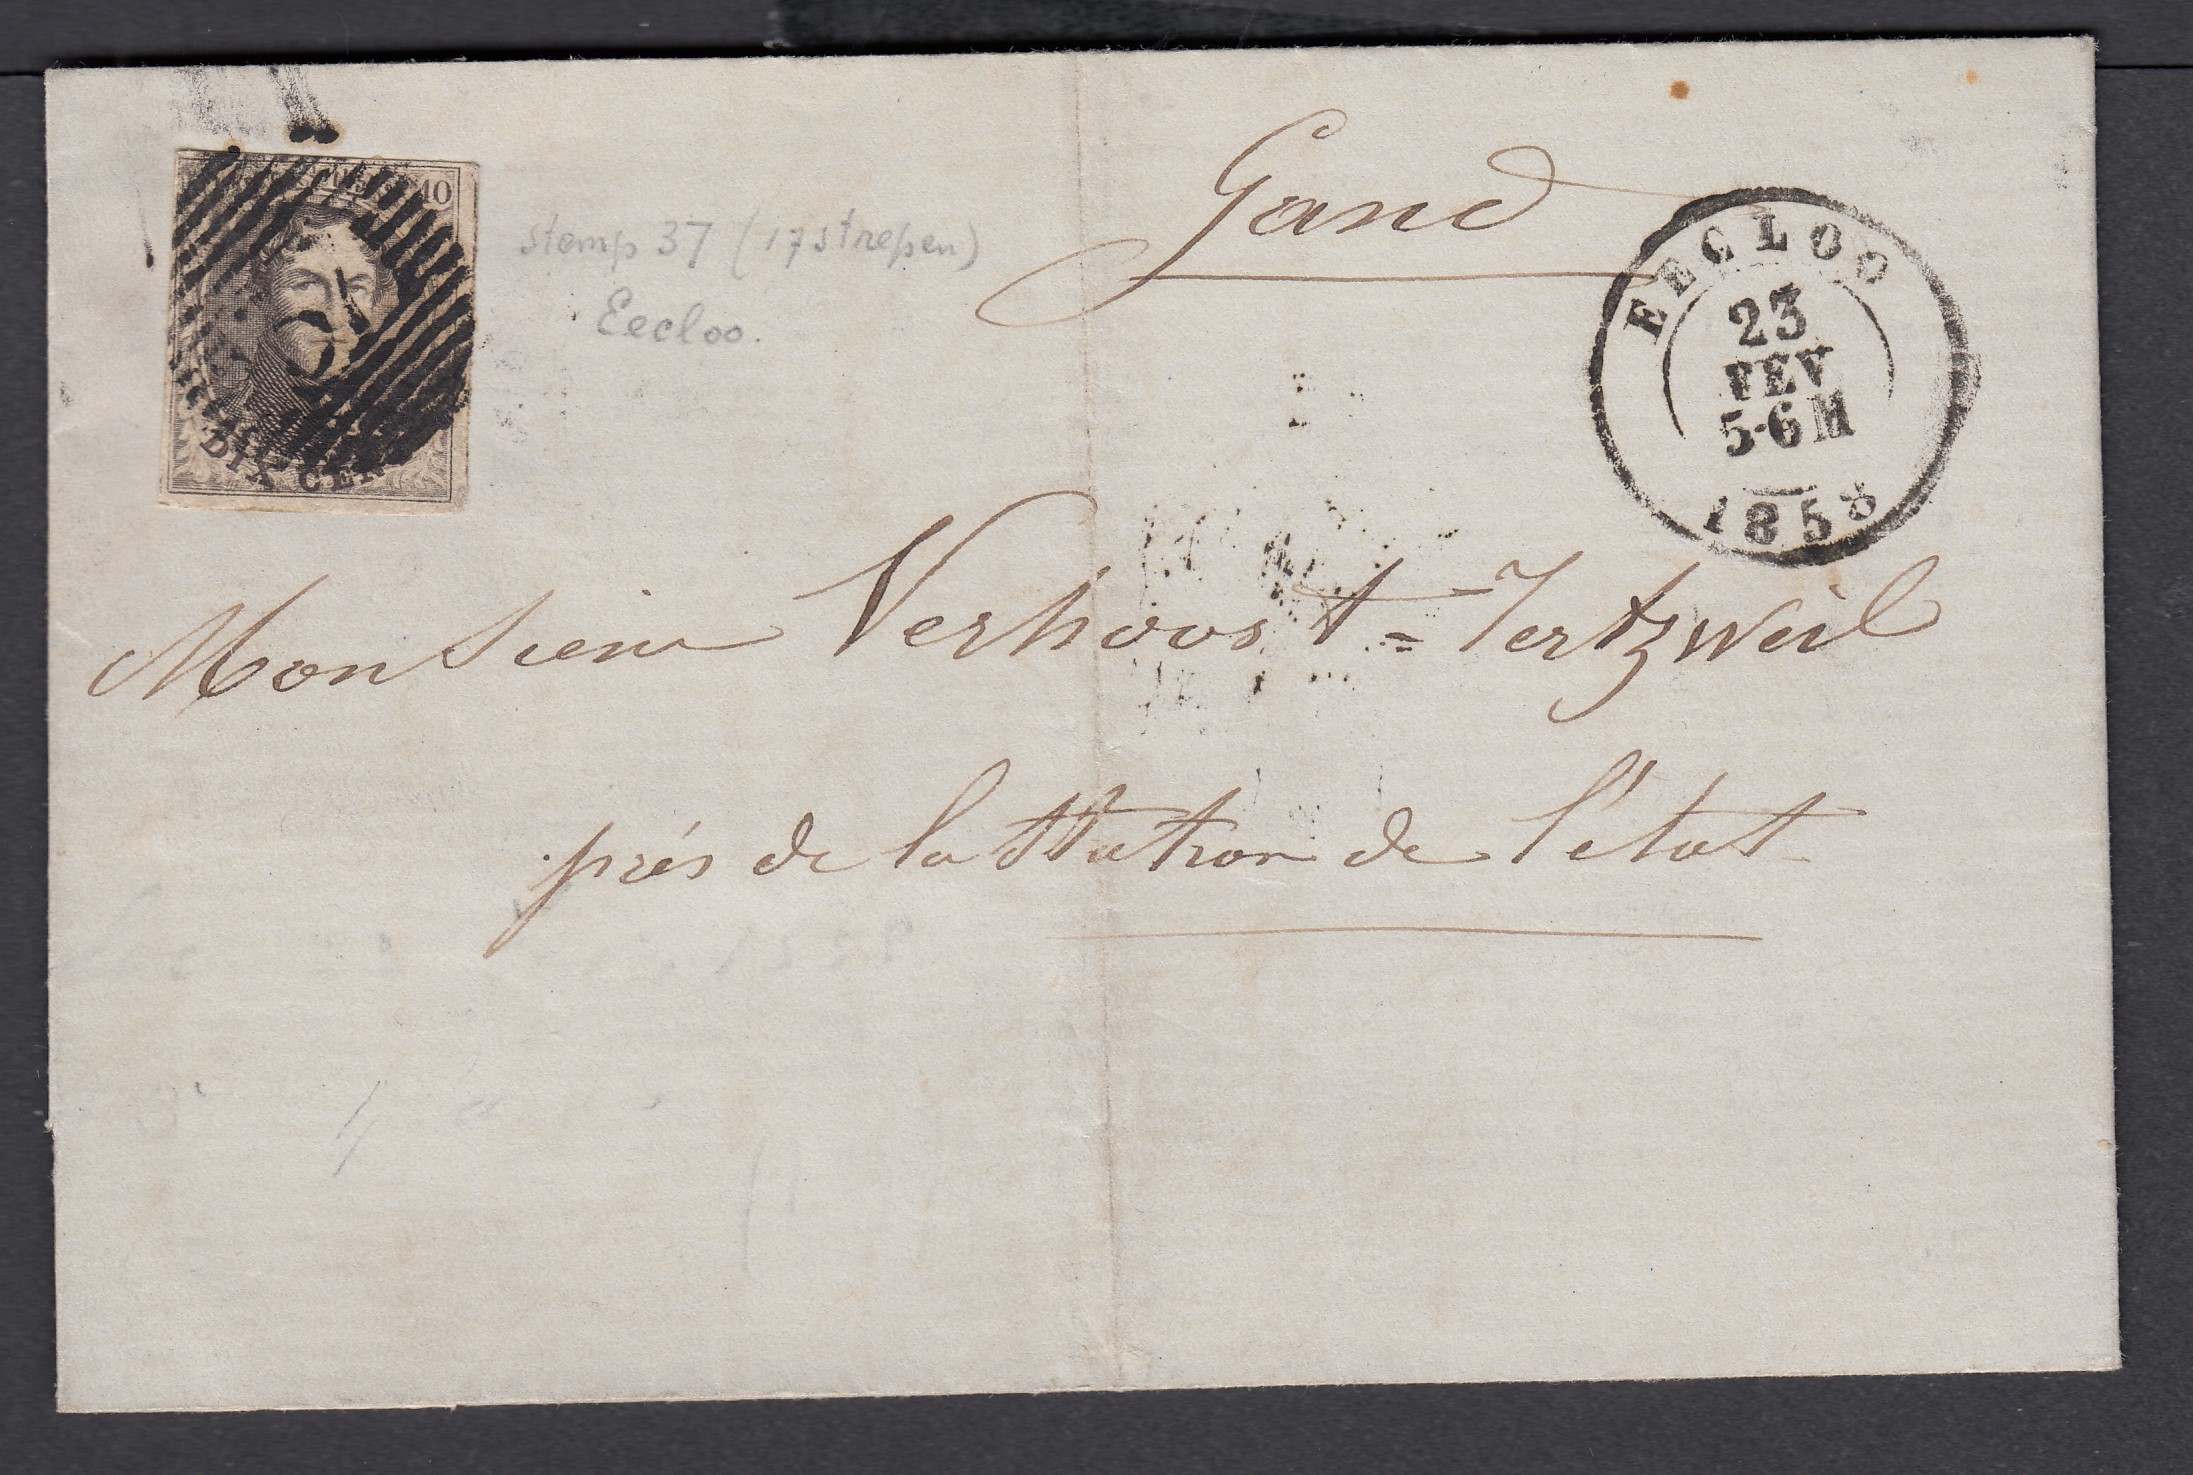 10
DIX CEN
stemp 37 (17 strepen)
Eecloo.
Gand
EECLOO
23
FEV
5-6 M
1858
Monsieur Verhoost=Tertzweil
près de la Station de l'état